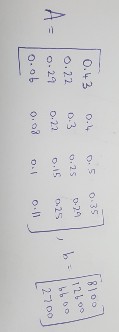 A = [ 0.43 0.4 0.5 0.35
0.22 0.3 0.25 0.29
0.29 0.22 0.15 0.25
0.06 0.08 0.1 0.11 ] , b = [ 8100
12600
6600
2700 ]